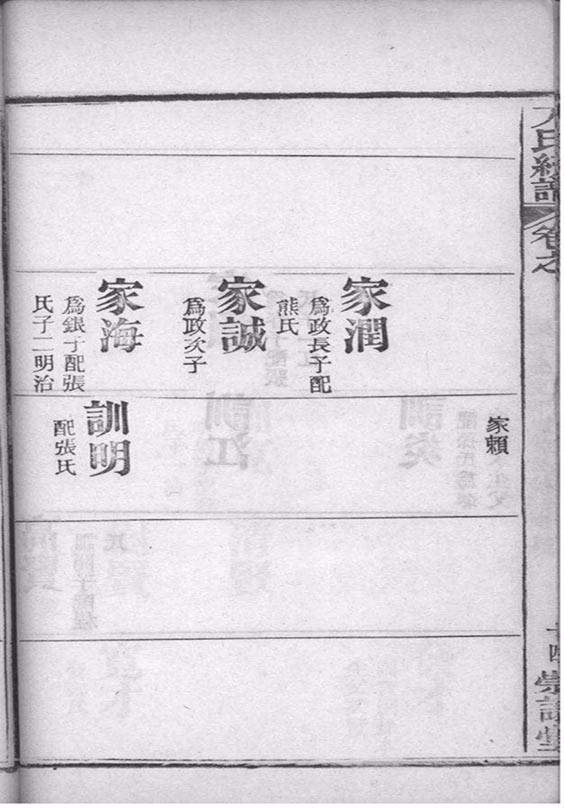 氏經譜
卷之
十四
崇訓堂
家賴
家潤
爲政長子配
熊氏
家誠
爲政次子
家海
爲銀子配張
氏子二明治
訓明
配張氏